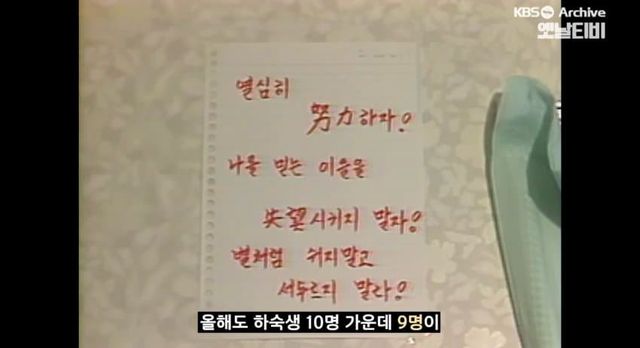 KBS Archive
옛날티비
열심히
努力하자!
나를 믿는 이들을
失望시키지 말자!
별처럼 쉬지말고
서두르지 말라!
올해도 하숙생 10명 가운데 9명이